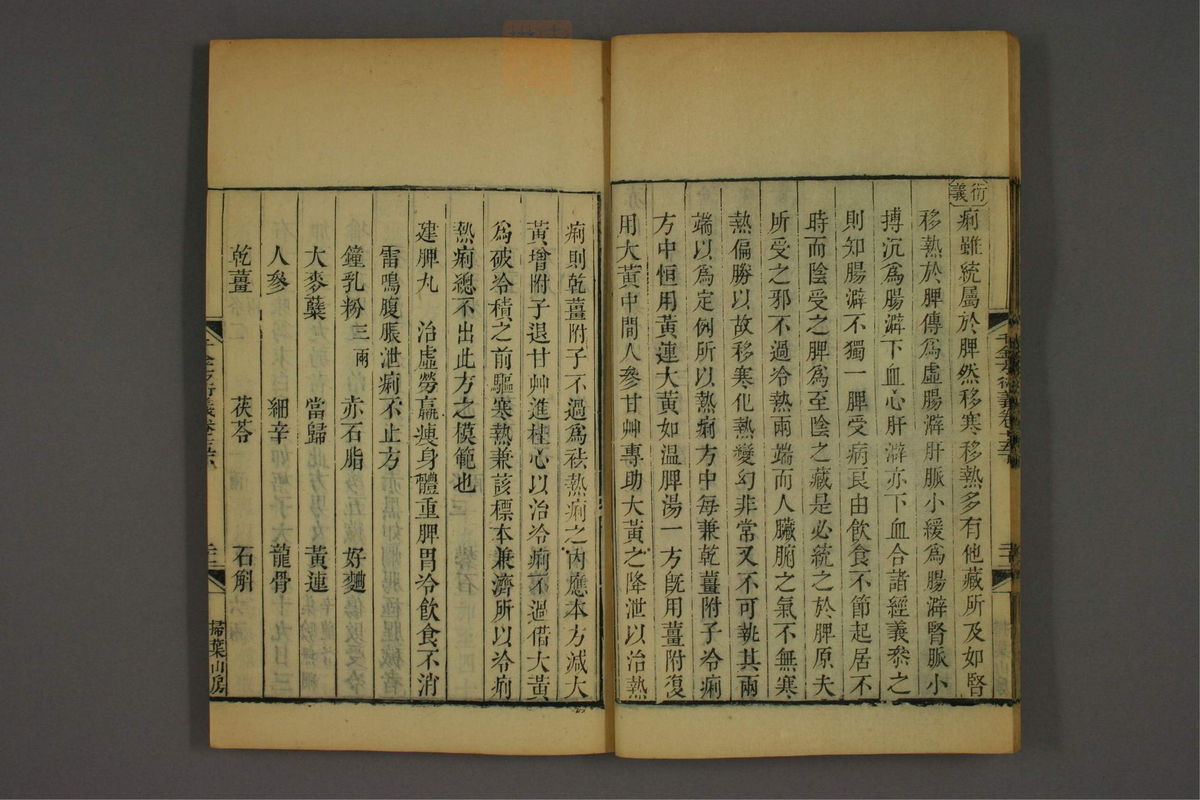 衍義
痢雖統屬於脾然移寒移熱多有他藏所及如腎
移熱於脾傳爲虛腸澼肝脈小緩爲腸澼腎脈小
搏沉爲腸澼下血心肝澼亦下血合諸經義叅之
則知腸澼不獨一脾受病良由飲食不節起居不
時而陰受之脾爲至陰之藏是必統之於脾原夫
所受之邪不過冷熱兩端而人臟腑之氣不無寒
熱偏勝以故移寒化熱變幻非常又不可執其兩
端以爲定例所以熱痢方中每兼乾薑附子冷痢
方中恒用黃連大黃如温脾湯一方旣用薑附復
用大黃中間人參甘艸專助大黃之降泄以治熱
痢則乾薑附子不過爲祛熱痢之内應本方减大
黃增附子退甘艸進桂心以治冷痢不過借大黃
爲破冷積之前驅寒熱兼該標本兼濟所以冷痢
熱痢總不出此方之模範也
建脾丸 治虛勞羸瘦身體重脾胃冷飲食不消
雷鳴腹脹泄痢不止方
鐘乳粉三兩 赤石脂 好麯
大麥櫱 當歸 黃連
人參 細辛 龍骨
乾薑 茯苓 石斛
千金方衍義卷
掃葉山房